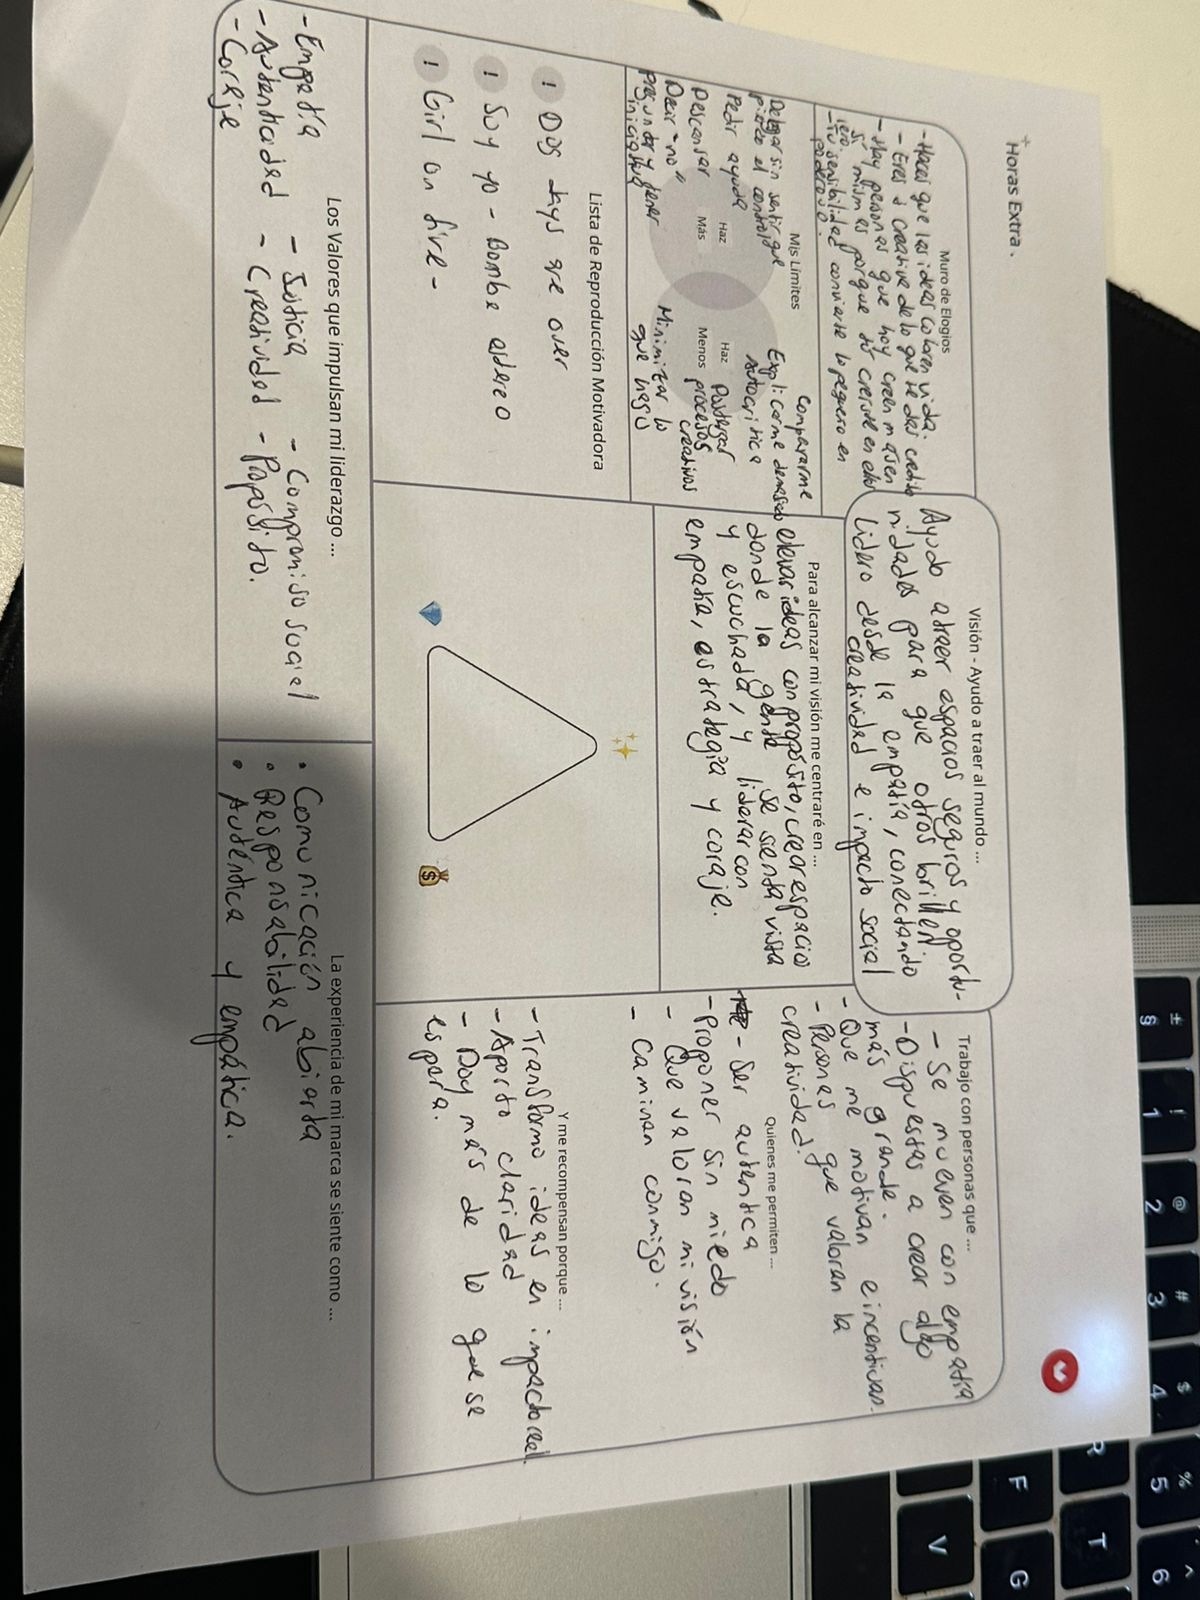 +Horas Extra.
Muro de Elogios
- Haces que las ideas cobren vida.
- Eres + creativa de lo que te das credito
- Hay personas que hoy creen más en
sí mismas porque tú creíste en ellas
- Tu sensibilidad convierte lo pequeño en
poderoso.
Mis Límites
Delegar sin sentir que
pierdo el control
Pedir ayuda
Descansar
Decir "no"
Preguntar y tener
iniciativa
Haz
Más
Haz
Menos
Compararme
Explicarme demasiado
autocritica
Postergar
procesos
creativos
Minimizar lo
que hago
Lista de Reproducción Motivadora
! Dog days are over
! Soy yo - Bomba estereo
! Girl on fire -
Visión - Ayudo a traer al mundo ...
Ayudo a traer espacios seguros y oportu-
nidades para que otros brillen
Lidero desde la empatía, conectando
creatividad e impacto social
Para alcanzar mi visión me centraré en ...
elevar ideas con propósito, crear espacios
donde la gente se sienta vista
y escuchada, y liderar con
empatía, estrategia y coraje.
✨
💎
💰
Trabajo con personas que ...
- Se mueven con empatía
- Dispuestas a crear algo
más grande.
- Que me motivan e incentivan.
- Personas que valoran la
creatividad.
Quienes me permiten ...
- Ser autentica
- Proponer sin miedo
- Que valoran mi visión
- Caminan conmigo.
Y me recompensan porque ...
- Transformo ideas en impacto real.
- Aporto claridad
- Doy más de lo que se
espera.
Los Valores que impulsan mi liderazgo ...
- Empatía - Justicia - Compromiso social
- Autenticidad - Creatividad - Propósito.
- Coraje
La experiencia de mi marca se siente como ...
• Comunicación abierta
• Responsabilidad
• Auténtica y empática.
± § ! 1 @ 2 # 3 $ 4 % 5 ^ 6
R T
F G
V